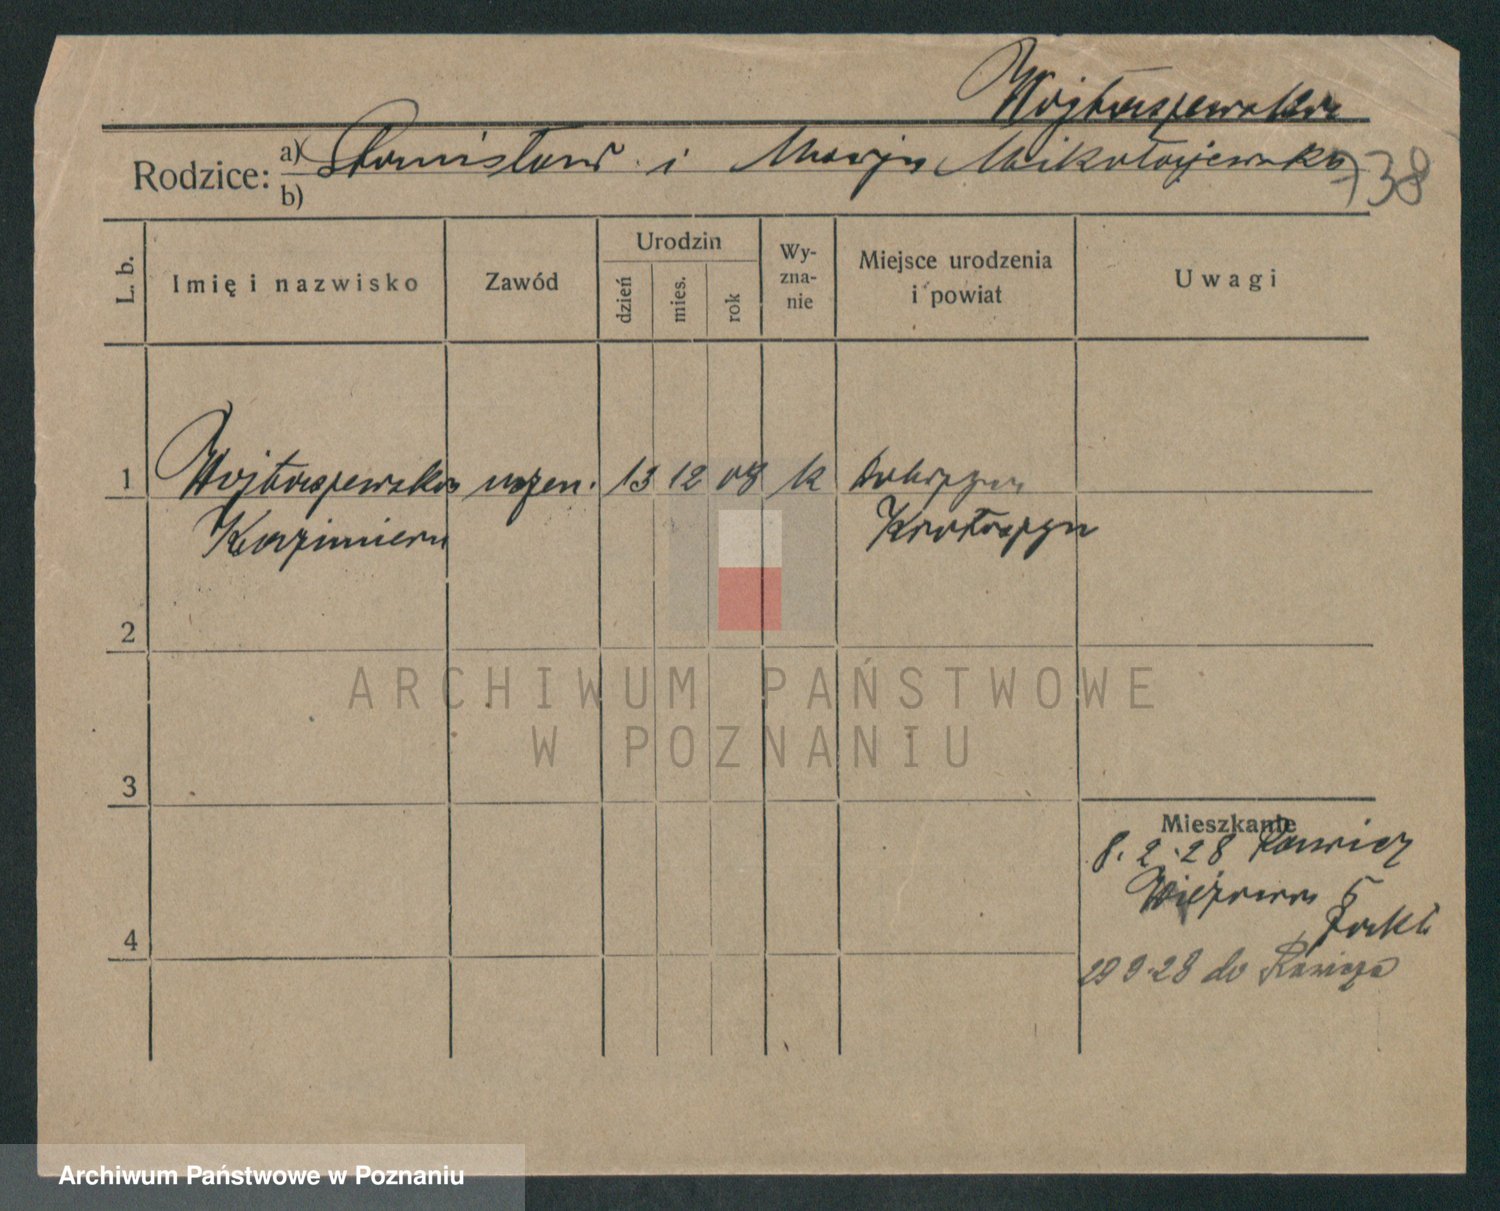 Wojtaszewska
Rodzice: a) Stanisław i Marja Mikołajewska
b)
738
L. b.
Imię i nazwisko
Zawód
Urodzin
dzień
mies.
rok
Wy-
zna-
nie
Miejsce urodzenia
i powiat
Uwagi
1 Wojtaszewska uczen. 13 12 08 k Dobrzyca
Kazimiera Krotoszyn
2
3
4
Mieszkanie
8.2.28 Rawicz
5
29 9.28 do Rawicza
ARCHIWUM PAŃSTWOWE
W POZNANIU
Archiwum Państwowe w Poznaniu